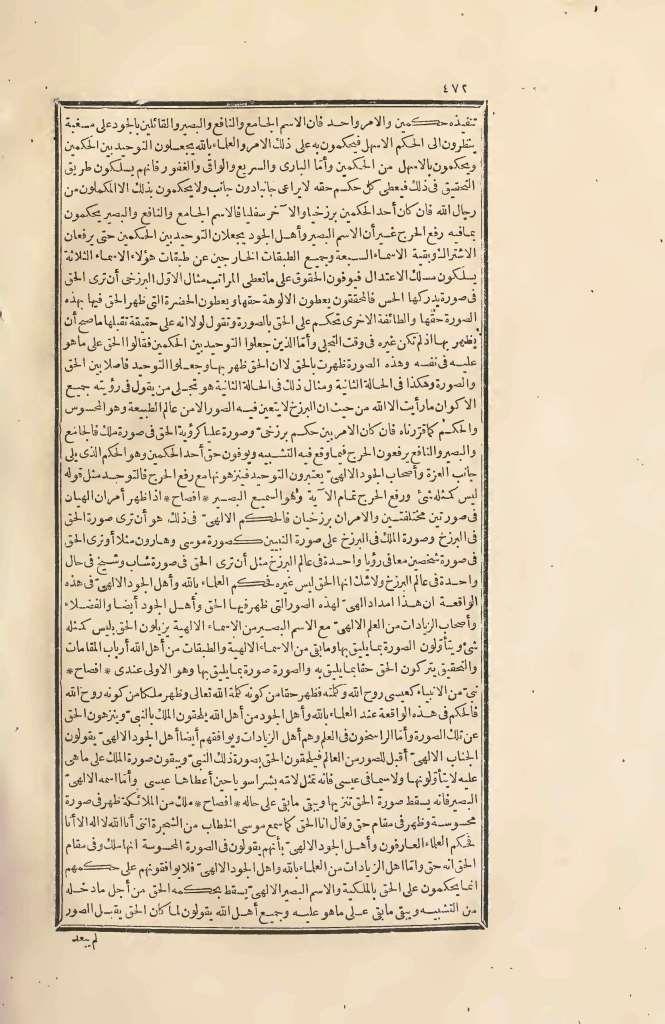 ٤٧٢
تنفيذه حكمين والامر واحد فان الاسم الجامع والنافع والبصير والقائلين بالجود على مسغبة
ينظرون الى الحكم الاسهل فيحكمون به على ذلك الامر والعلماء بالله يجعلون التوحيد بين الحكمين
ويحكمون بالاسهل من الحكمين وأما البارى والسريع والواقى والغفور فانهم يسلكون طريق
التحقيق فى ذلك فيعطى كل حكم حقه لا يراعى جانبا دون جانب ولا يحكمون بذلك الا الكملون من
رجال الله فان كان أحد الحكمين برزخيا والآخر سفليا فالاسم الجامع والنافع والبصير يحكمون
بما فيه رفع الحرج غير أن الاسم البصير وأهل الجود يجعلان التوحيد بين الحكمين حتى يرفعان
الاشتراك وبقية الاسماء السبعة وجميع الطبقات الخارجين عن طبقات هؤلاء الاسماء الثلاثة
يسلكون مسلك الاعتدال فيوفون الحقوق على ما تعطى المراتب مثال الاول البرزخى أن ترى الحق
فى صورة يدركها الحس فالمحققون يعطون الالوهة حقها ويعطون الحضرة التى ظهر الحق فيها بهذه
الصورة حقها والطائفة الاخرى تحكم على الحق بالصورة وتقول لولا انه على حقيقة تقبلها ما صح أن
يظهر بها اذ لم تكن غيره فى وقت التجلى وأما الذين جعلوا التوحيد بين الحكمين فقالوا الحق على ما هو
عليه فى نفسه وهذه الصورة ظهرت بالحق لا ان الحق ظهر بها وجعلوا التوحيد فاصلا بين الحق
والصورة وهكذا فى الحالة الثانية ومثال ذلك فى الحالة الثانية هو تجلى من يقول فى رؤيته جميع
الاكوان ما رأيت الا الله من حيث ان البرزخ لا يتعين فيه الصور الا من عالم الطبيعة وهو المحسوس
والحكم كما قررناه فان كان الامر بين حكم برزخى وصورة عليا كرؤية الحق فى صورة ملك فالجامع
والبصير والنافع يرفعون الحرج فيما وقع فيه التشبيه ويوفون حق أحد الحكمين وهو الحكم الذى يلى
جانب العزة وأصحاب الجود الالهى يعتبرون التوحيد فينزهونها مع رفع الحرج فالتوحيد مثل قوله
ليس كمثله شئ ورفع الحرج تمام الآية وهو السميع البصير * افصاح * اذا ظهر أمران الهيان
فى صورتين مختلفتين والامران برزخيان فالحكم الالهى فى ذلك هو أن ترى صورة الحق
فى البرزخ وصورة الملك فى البرزخ على صورة النبيين كصورة موسى وهارون مثلا أو نرى الحق
فى صورة شخصين معا فى رؤيا واحدة فى عالم البرزخ مثل أن ترى الحق فى صورة شاب وشيخ فى حال
واحدة فى عالم البرزخ ولا شك انها الحق ليس غيره فحكم العلماء بالله وأهل الجود الالهى فى هذه
الواقعة ان هذا امداد الهى لهذه الصور التى ظهر فيها الحق وأهل الجود أيضا والفضلاء
وأصحاب الزيادات من العلم الالهى مع الاسم البصير من الاسماء الالهية يزيلون الحق بليس كمثله
شئ ويتأولون الصورة بما يليق بها وما بقى من الاسماء الالهية والطبقات من أهل الله أرباب المقامات
والتحقيق يتركون الحق حقا بما يليق به والصورة صورة بما يليق بها وهو الاولى عندى * افصاح *
نبى من الانبياء كعيسى روح الله وكلمته فظهر حقا من كونه كلمة الله تعالى وظهر ملكا من كونه روح الله
فالحكم فى هذه الواقعة عند العلماء بالله وأهل الجود من أهل الله يلحقون الملك بالنبى وينزهون الحق
عن تلك الصورة وأما الراسخون فى العلم وهم أهل الزيادات ويوافقهم أيضا أهل الالهى يقولون
الجناب الالهى أقبل للصور من العالم فيلحقون الحق بصورة ذلك النبى ويبقون صورة الملك على ما هى
عليه لا يتأولونها ولا سيما فى عيسى فانه تمثل لامه بشرا سويا حين أعطاها عيسى وأما اسمه الالهى
البصير فانه يسقط صورة الحق تنزيها ويبقى ما بقى على حاله * افصاح * ملك من الملائكة ظهر فى صورة
محسوسة وظهر فى مقام حق وقال انا الحق كما سمع موسى الخطاب من الشجرة اننى أنا الله لا اله الا أنا
فحكم العلماء العارفون وأهل الجود الالهى بأنهم يقولون فى الصورة المحسوسة انها ملك وفى مقام
الحق انه حق وأما أهل الزيادات من العلماء بالله وأهل الجود الالهى فلا يوافقونهم على حكمهم
انما يحكمون على الحق بالملكية والاسم البصير الالهى يسقط بحكمه الحق من أجل ما دخله
من التشبيه ويبقى ما بقى على ما هو عليه وجميع أهل الله يقولون لما كان الحق يقبل الصور
لم يبعد